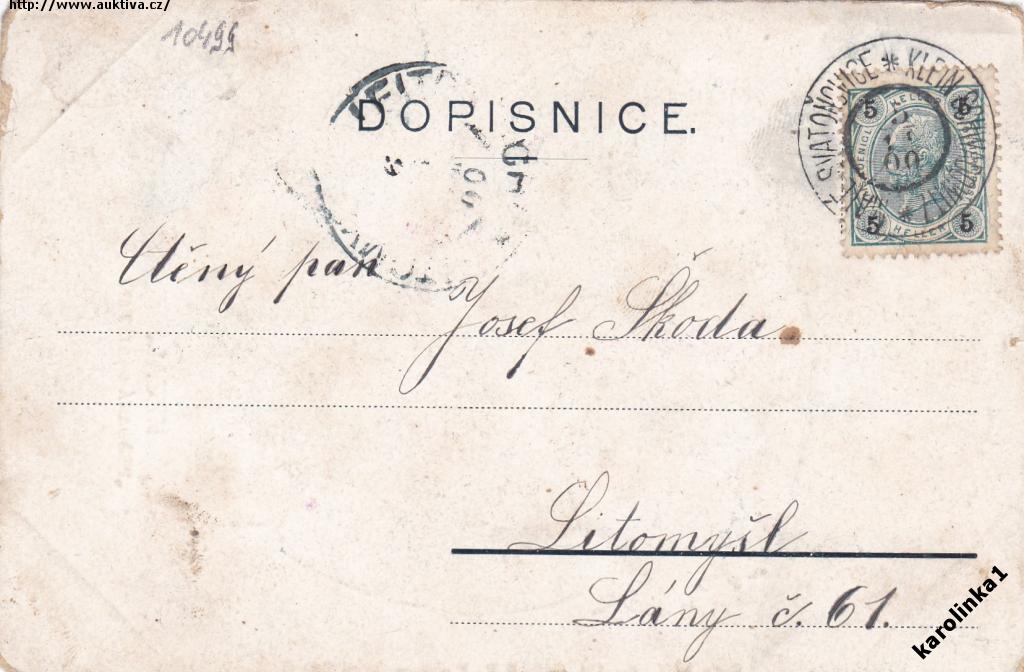 http://www.auktiva.cz/
10499
DOPISNICE.
5 5
5 5
HELLER
SVATOŇOVICE * KLEIN
00
Ctěný pan
Josef Škoda
Litomyšl
Lány č. 61.
karolinka1